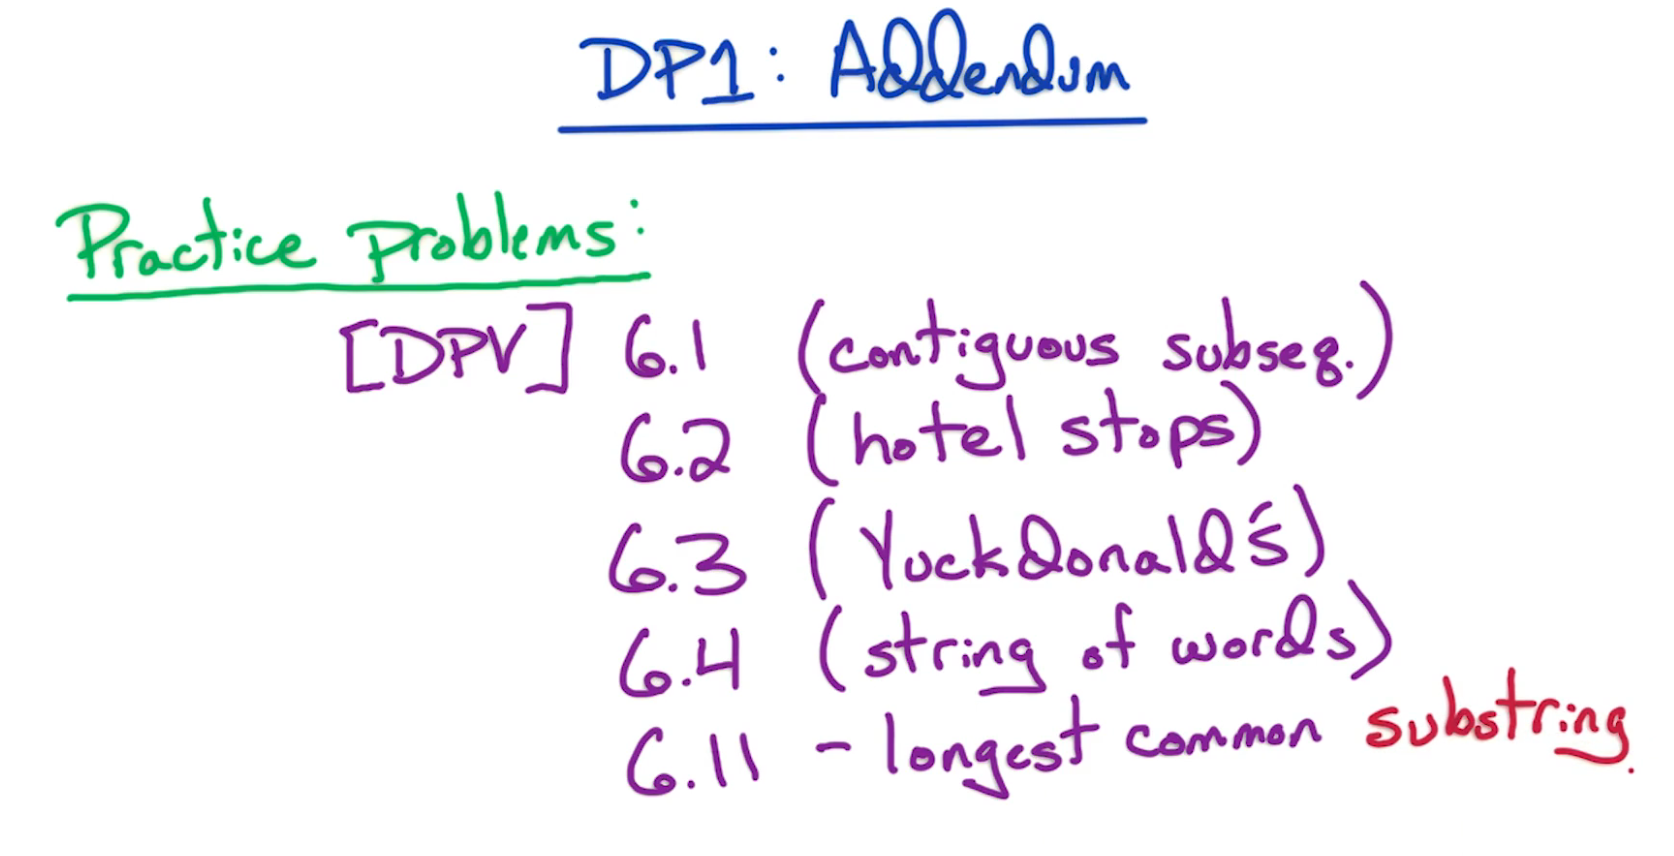 DP1: Addendum
Practice problems:
[DPV] 6.1 (contiguous subseq.)
6.2 (hotel stops)
6.3 (Yuckdonald's)
6.4 (string of words)
6.11 - longest common substring.